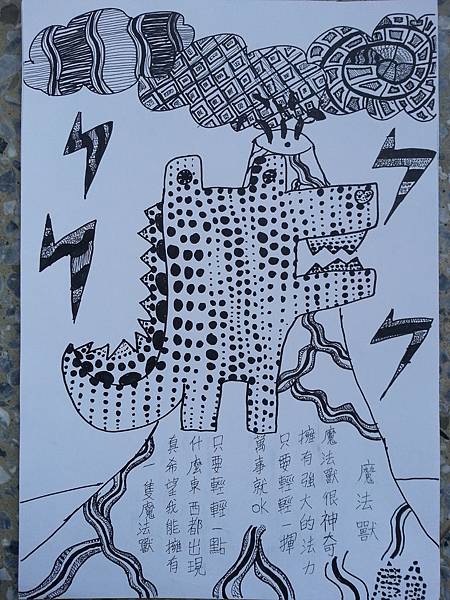 魔法獸
魔法獸很神奇
擁有強大的法力
只要輕輕一揮
萬事就OK
只要輕輕一點
什麼東西都出現
真希望我能擁有
一隻魔法獸